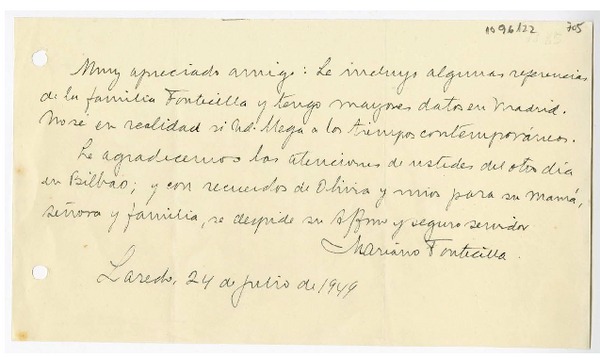 1096122 705
Muy apreciado amigo: Le incluyo algunas referencias
de la familia Fonticilla y tengo mayores datos en Madrid.
No sé en realidad si Ud. llega a los tiempos contemporáneos.
Le agradecemos las atenciones de ustedes del otro día
en Bilbao; y con recuerdos de Olivia y mios para su Mamá,
señora y familia, se despide su affmo y seguro servidor
Mariano Fonticilla.
Laredo, 24 de julio de 1949